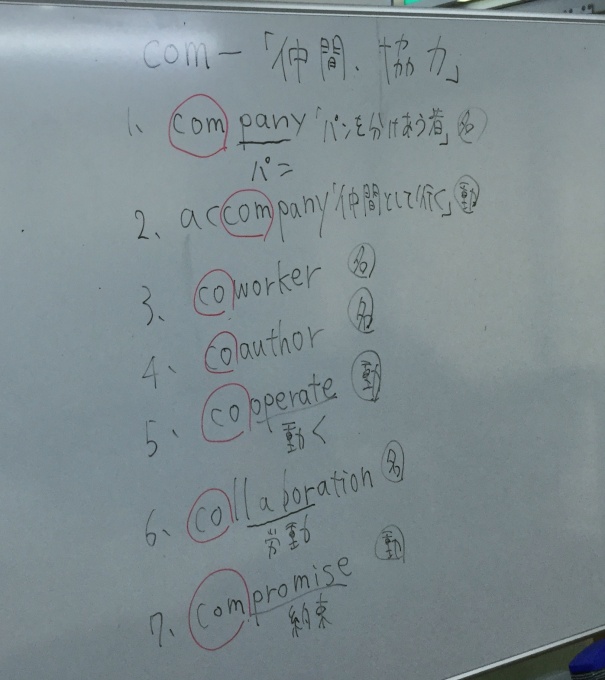 com-「仲間、協力」
1、company「パンを分けあう者」名
パン
2、accompany「仲間として行く」動
3、coworker 名
4、coauthor 名
5、cooperate 動
動く
6、collaboration 名
労働
7、compromise 動
約束